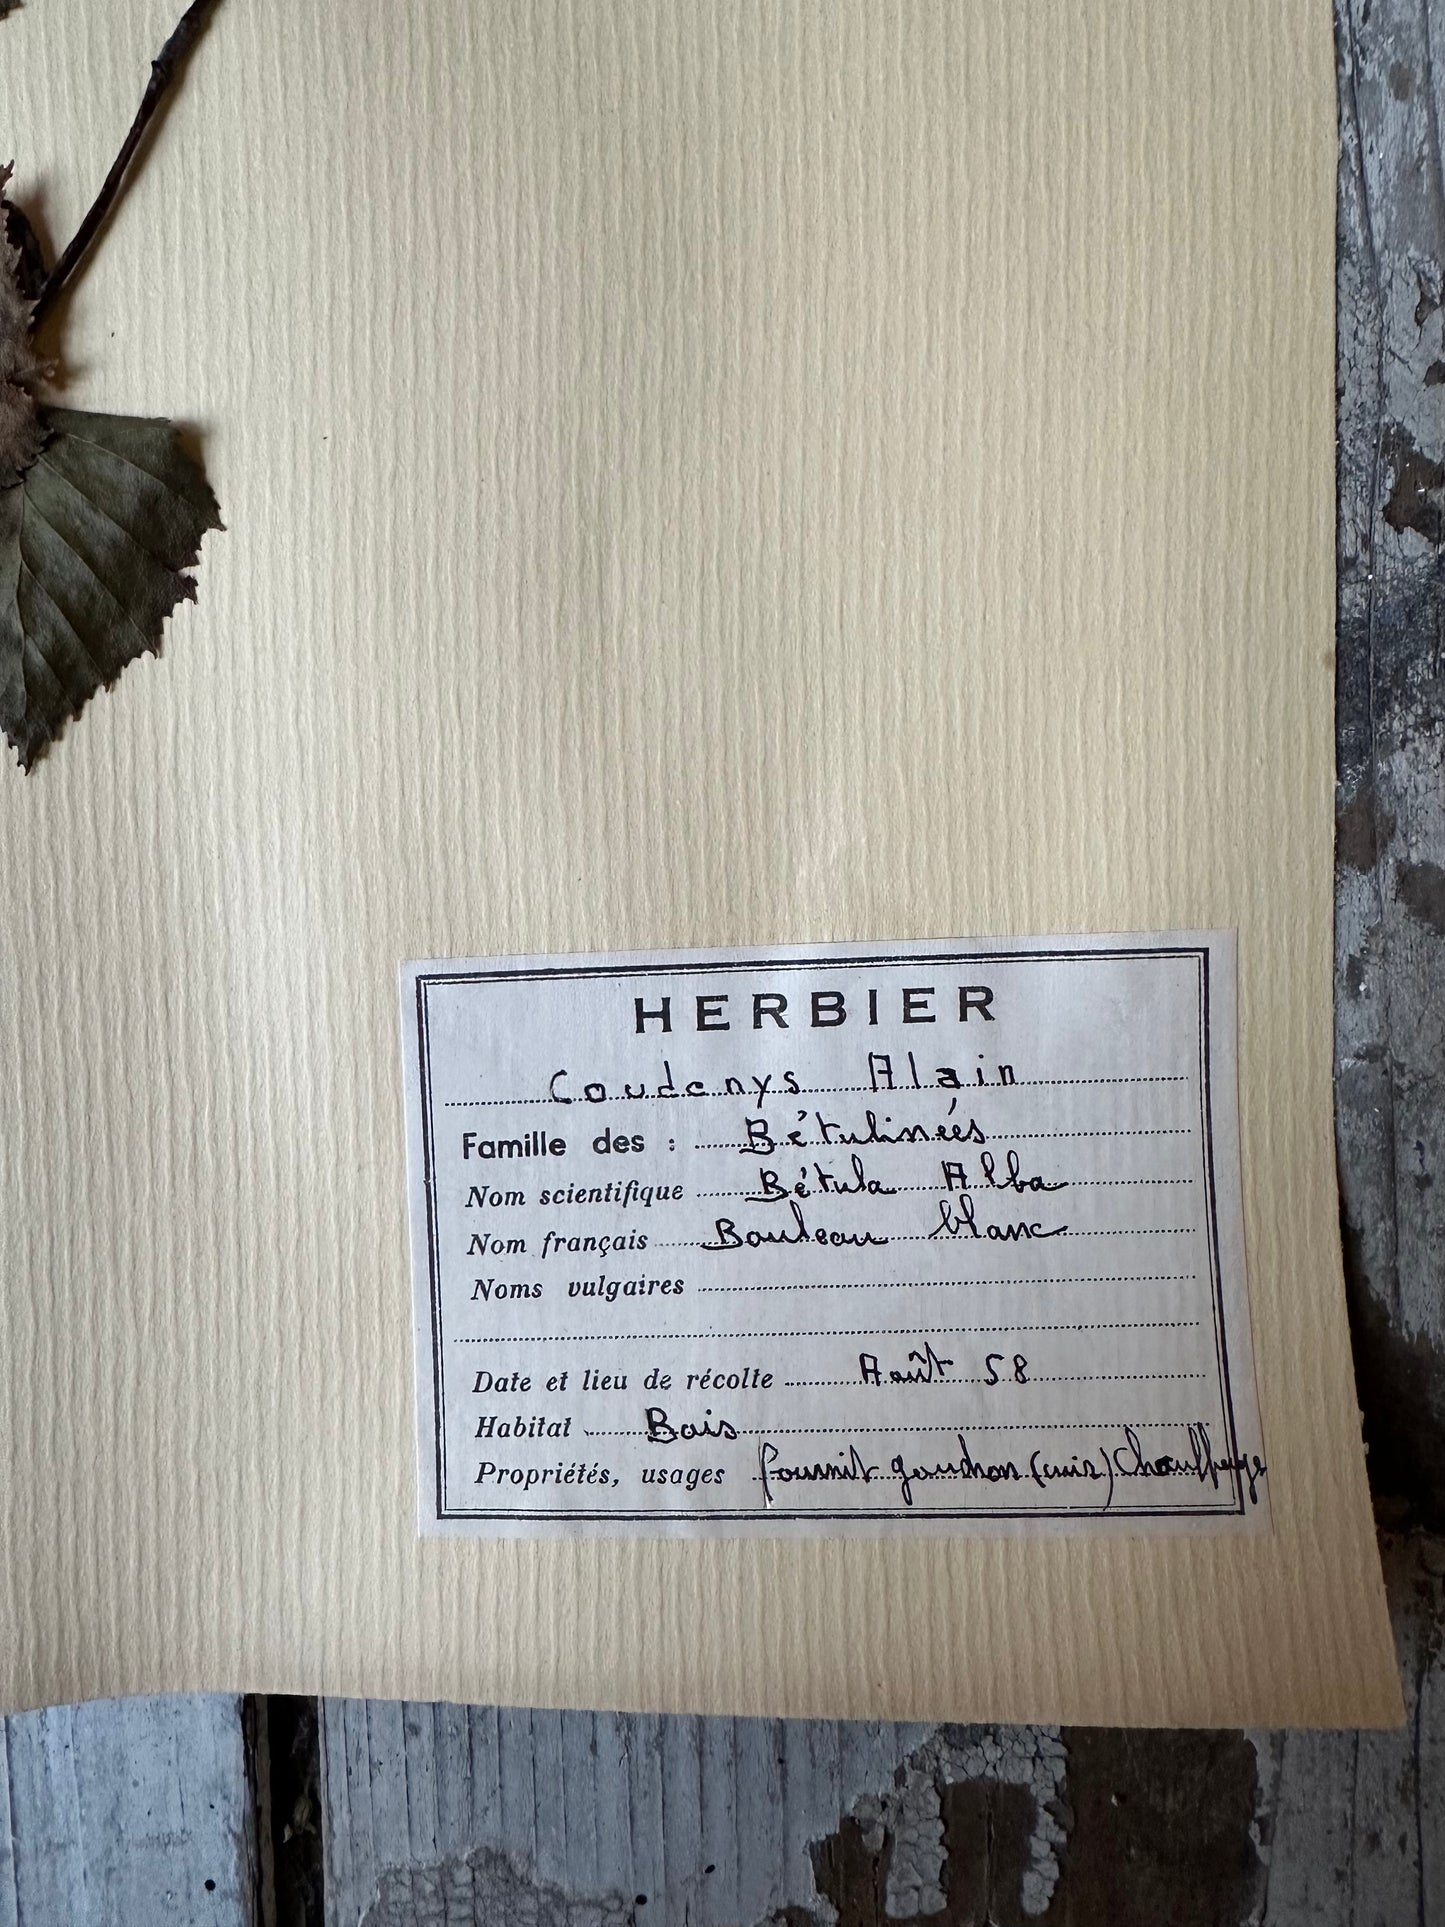 HERBIER
Coudenys Alain
Famille des : Bétulineés
Nom scientifique Bétula Alba
Nom français Bouleau blanc
Noms vulgaires
Date et lieu de récolte Août 58
Habitat Bois
Propriétés, usages fournit goudron (cuir) Chauffage